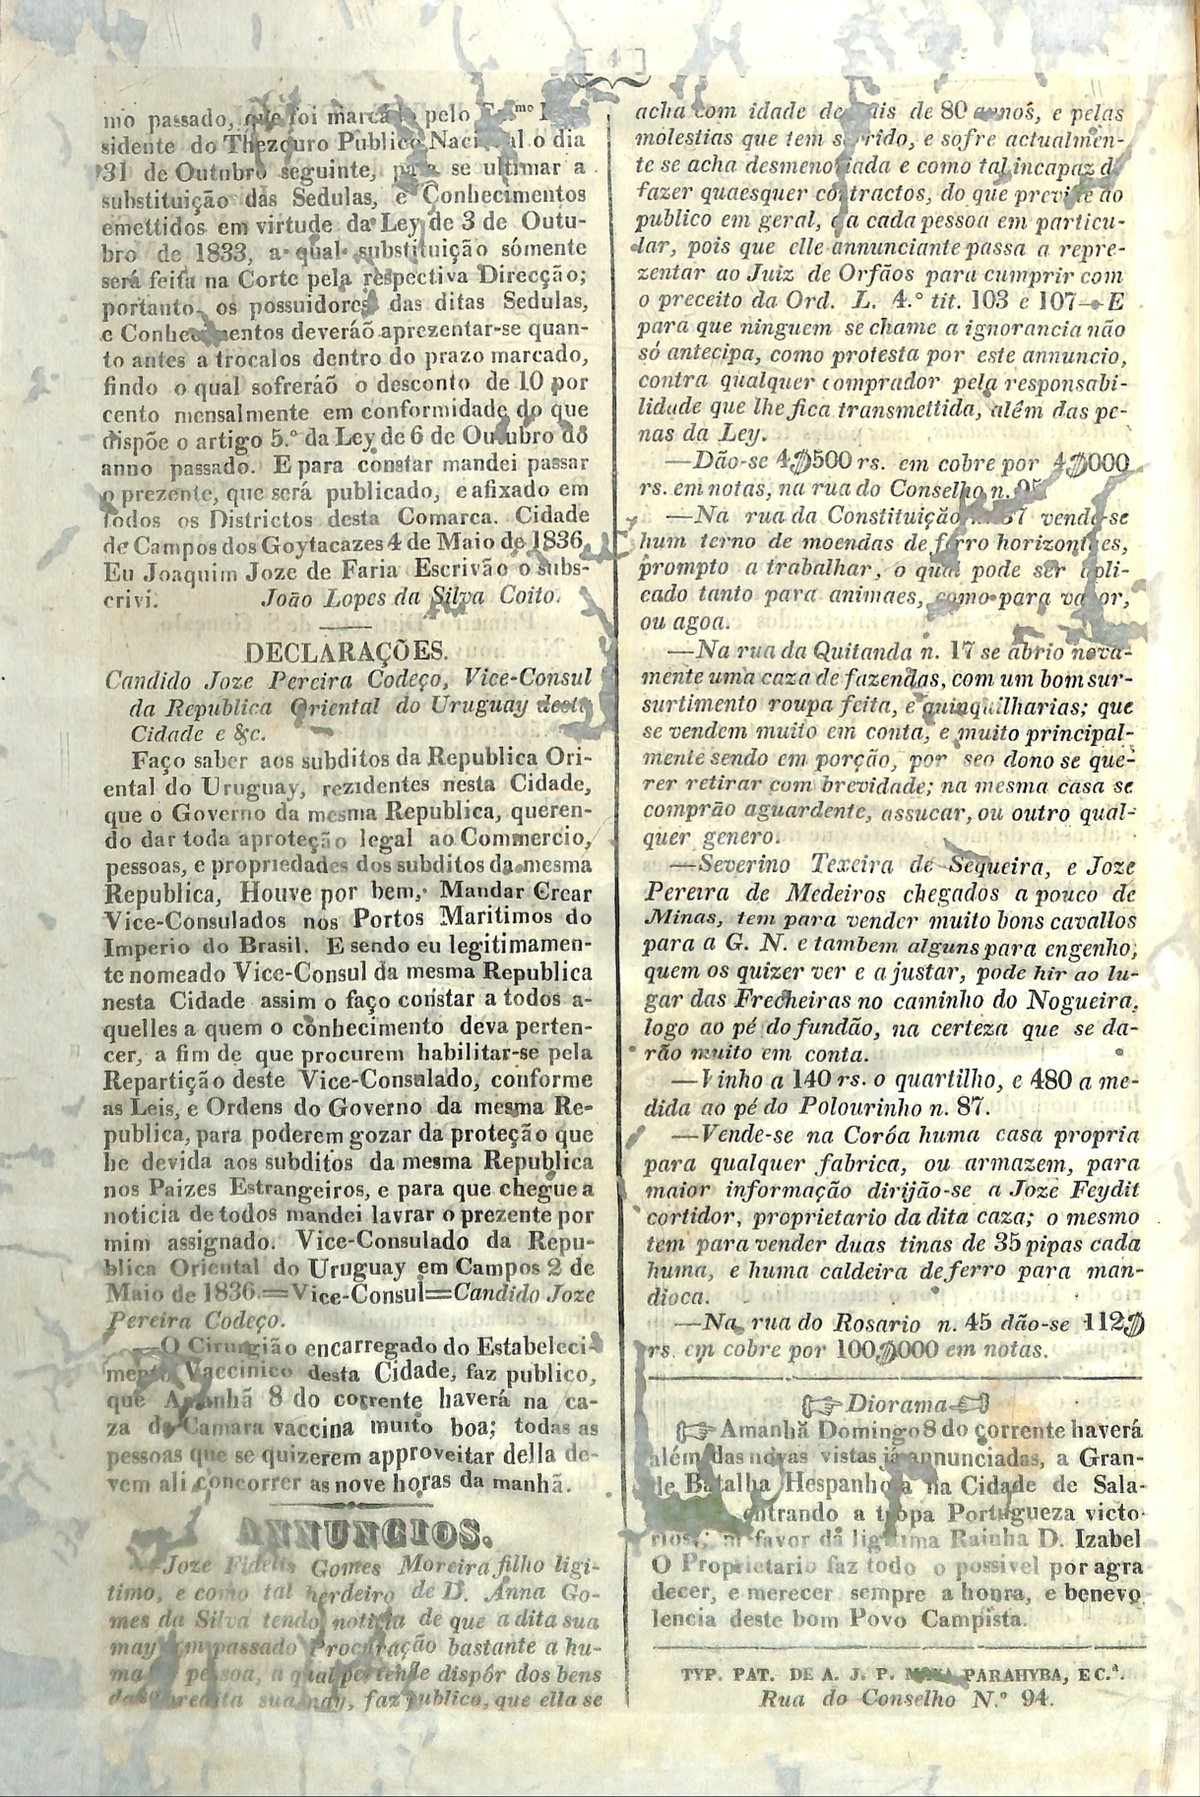 [ 4 ]
mo passado, que foi marcado pelo Ex.mo
sidente do Thezouro Publico Nacional o dia
31 de Outubro seguinte, para se ultimar a
substituição das Sedulas, e Conhecimentos
emettidos em virtude da Ley de 3 de Outu-
bro de 1833, a qual substituição sómente
será feita na Corte pela respectiva Direcção;
portanto os possuidores das ditas Sedulas,
e Conhecimentos deveráõ aprezentar-se quan-
to antes a trocalos dentro do prazo marcado,
findo o qual sofreráõ o desconto de 10 por
cento mensalmente em conformidade do que
dispõe o artigo 5.º da Ley de 6 de Outubro do
anno passado. E para constar mandei passar
o prezente, que será publicado, e afixado em
todos os Districtos desta Comarca. Cidade
de Campos dos Goytacazes 4 de Maio de 1836,
Eu Joaquim Joze de Faria Escrivão o subs-
crivi. João Lopes da Silva Coito.
DECLARAÇÕES.
Candido Joze Pereira Codeço, Vice-Consul
da Republica Oriental do Uruguay desta
Cidade e &c.
Faço saber aos subditos da Republica Ori-
ental do Uruguay, rezidentes nesta Cidade,
que o Governo da mesma Republica, queren-
do dar toda aproteção legal ao Commercio,
pessoas, e propriedades dos subditos da mesma
Republica, Houve por bem, Mandar Crear
Vice-Consulados nos Portos Maritimos do
Imperio do Brasil. E sendo eu legitimamen-
te nomeado Vice-Consul da mesma Republica
nesta Cidade assim o faço constar a todos a-
quelles a quem o conhecimento deva perten-
cer, a fim de que procurem habilitar-se pela
Repartição deste Vice-Consulado, conforme
as Leis, e Ordens do Governo da mesma Re-
publica, para poderem gozar da proteção que
he devida aos subditos da mesma Republica
nos Paizes Estrangeiros, e para que chegue a
noticia de todos mandei lavrar o prezente por
mim assignado. Vice-Consulado da Repu-
blica Oriental do Uruguay em Campos 2 de
Maio de 1836.=Vice-Consul=Candido Joze
Pereira Codeço.
—O Cirurgião encarregado do Estabeleci-
mento Vaccinico desta Cidade, faz publico,
que Amanhã 8 do corrente haverá na ca-
za da Camara vaccina muito boa; todas as
pessoas que se quizerem approveitar della de-
vem ali concorrer as nove horas da manhã.
ANNUNCIOS.
—Joze Fidelis Gomes Moreira filho ligi-
timo, e como tal herdeiro de D. Anna Go-
mes da Silva tendo noticia de que a dita sua
may tem passado Procuração bastante a hu-
ma pessoa, a qual pertende dispôr dos bens
da sobredita sua may, faz publico, que ella se
acha com idade de mais de 80 annos, e pelas
molestias que tem sofrido, e sofre actualmen-
te se acha desmemoriada e como tal incapaz de
fazer quaesquer contractos, do que previne ao
publico em geral, e a cada pessoa em particu-
lar, pois que elle annunciante passa a repre-
zentar ao Juiz de Orfãos para cumprir com
o preceito da Ord. L. 4.º tit. 103 e 107—E
para que ninguem se chame a ignorancia não
só antecipa, como protesta por este annuncio,
contra qualquer comprador pela responsabi-
lidade que lhe fica transmettida, além das pe-
nas da Ley.
—Dão-se 4$500 rs. em cobre por 4$000
rs. em notas, na rua do Conselho n.
—Na rua da Constituição 37 vende-se
hum terno de moendas de ferro horizontaes,
prompto a trabalhar, o qual pode ser apli-
cado tanto para animaes, como para vapor,
ou agoa.
—Na rua da Quitanda n. 17 se abrio nova-
mente uma caza de fazendas, com um bom sur-
surtimento roupa feita, e quinquilharias; que
se vendem muito em conta, e muito principal-
mente sendo em porção, por seo dono se que-
rer retirar com brevidade; na mesma casa se
comprão aguardente, assucar, ou outro qual-
quer genero.
—Severino Texeira de Sequeira, e Joze
Pereira de Medeiros chegados a pouco de
Minas, tem para vender muito bons cavallos
para a G. N. e tambem alguns para engenho,
quem os quizer ver e ajustar, pode hir ao lu-
gar das Frecheiras no caminho do Nogueira,
logo ao pé do fundão, na certeza que se da-
rão muito em conta.
—Vinho a 140 rs. o quartilho, e 480 a me-
dida ao pé do Polourinho n. 87.
—Vende-se na Coróa huma casa propria
para qualquer fabrica, ou armazem, para
maior informação dirijão-se a Joze Feydit
cortidor, proprietario da dita caza; o mesmo
tem para vender duas tinas de 35 pipas cada
huma, e huma caldeira de ferro para man-
dioca.
—Na rua do Rosario n. 45 dão-se 112$
rs. em cobre por 100$000 em notas.
Diorama
Amanhã Domingo 8 do corrente haverá
além das novas vistas já annunciadas, a Gran-
de Batalha Hespanhola na Cidade de Sala-
entrando a tropa Portugueza victo-
riosa; a favor da ligitima Rainha D. Izabel
O Proprietario faz todo o possivel por agra
decer, e merecer sempre a honra, e benevo
lencia deste bom Povo Campista.
TYP. PAT. DE A. J. P. PARAHYBA, E C.ª.
Rua do Conselho N.º 94.